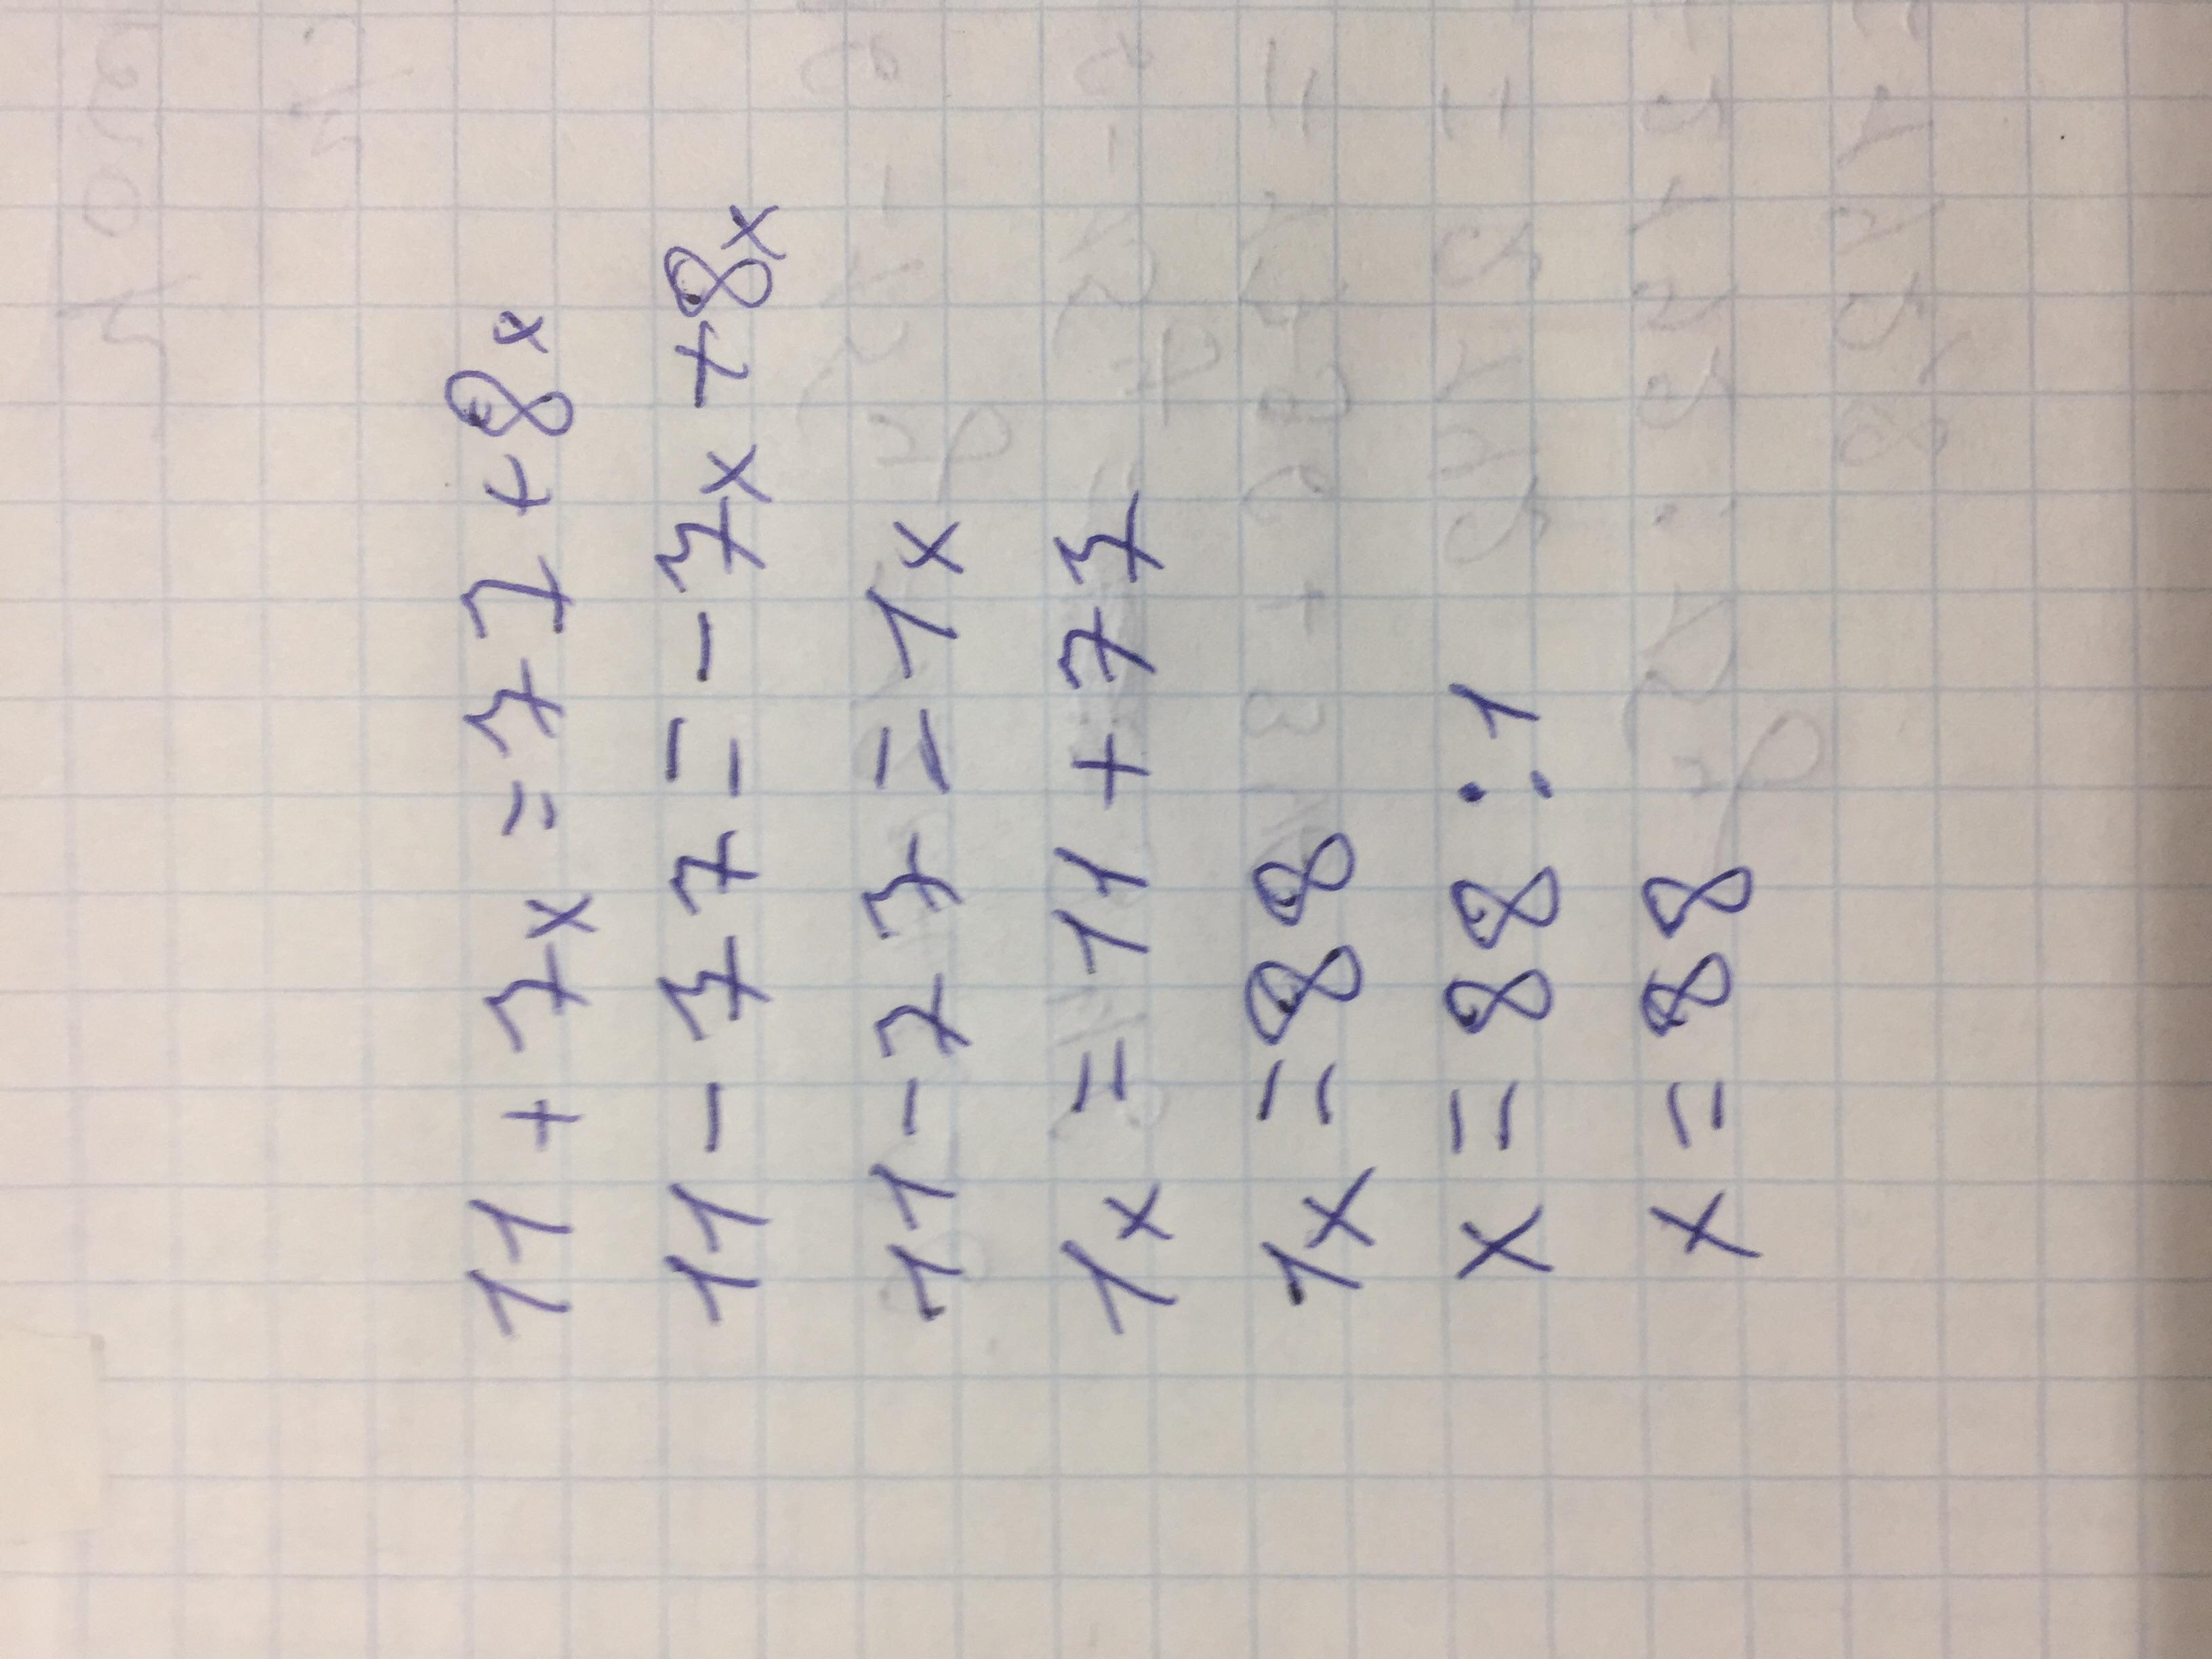 11 + 7x = 77 + 8x
11 - 77 = - 7x + 8x
11 - 77 = 1x
1x = 11 + 77
1x = 88
x = 88 : 1
x = 88